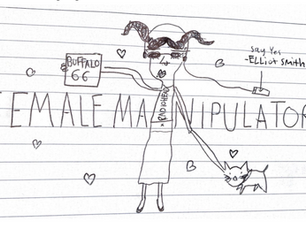 say Yes
-Elliot Smith
BUFFALO
66
FEMALE MANIPULATOR
RADIOHEAD